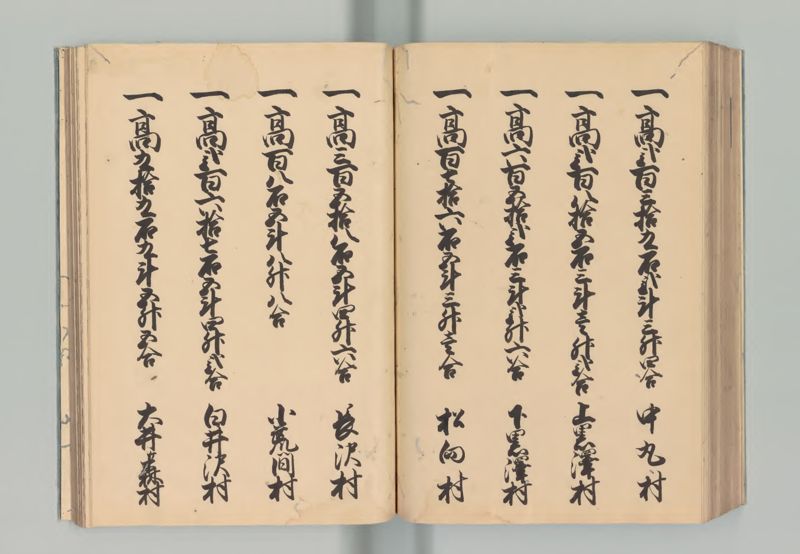 一高弐百三拾九石弐斗三升四合 中丸村
一高弐百八拾五石三斗壱升弐合 上黒澤村
一高六百五拾弐石三斗弐升六合 下黒澤村
一高百七拾六石五斗三升壱合 松向村
一高三百五拾八石五斗四升六合 長沢村
一高百八石五斗八升八合 小荒間村
一高弐百六拾七石五斗四升弐合 白井沢村
一高九拾九石九斗五升五合 大井森村